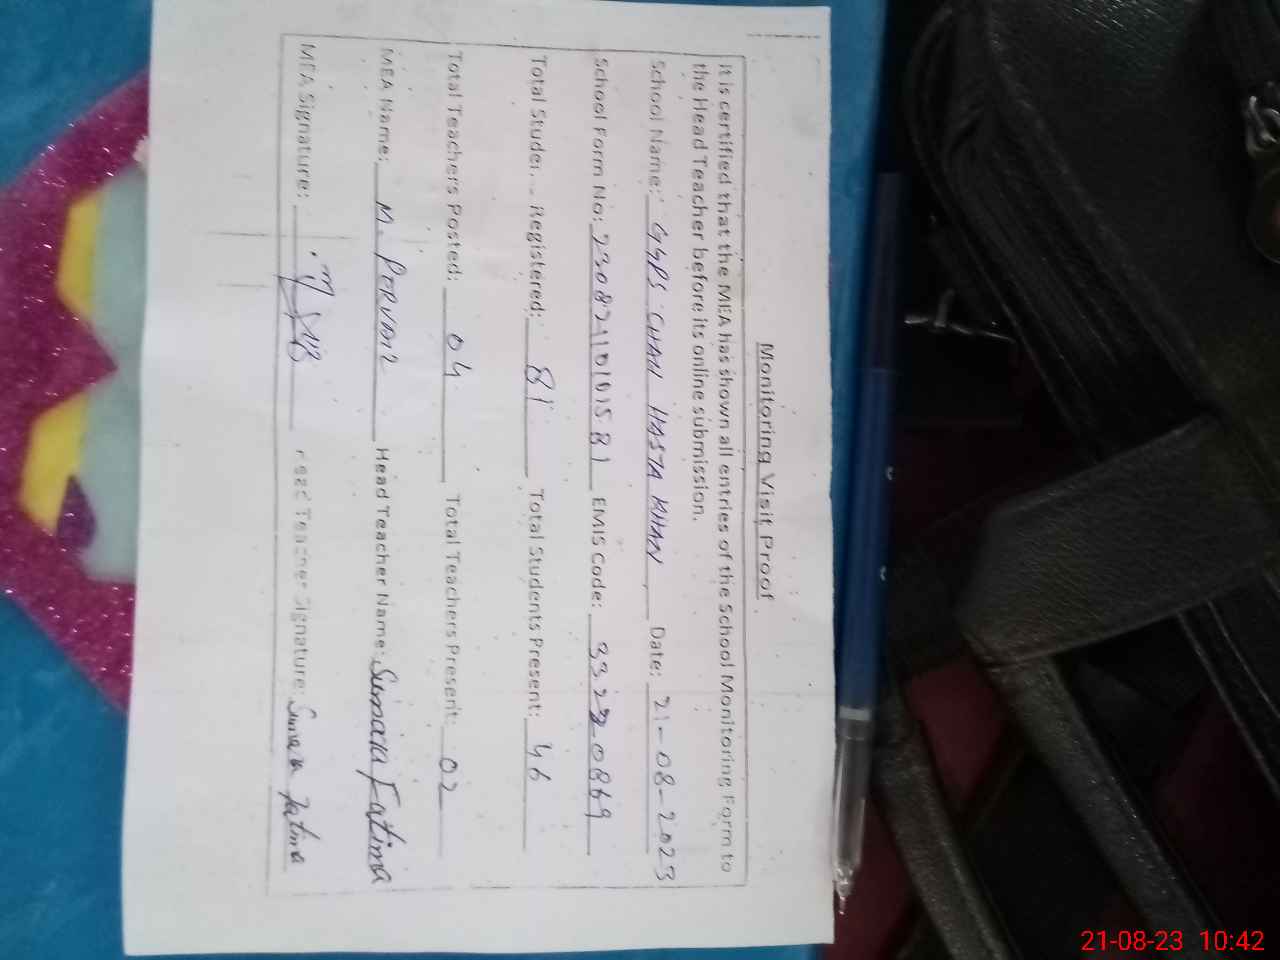 Monitoring Visit Proof
It is certified that the MEA has shown all entries of the School Monitoring Form to
the Head Teacher before its online submission.
School Name: GGPS CHAH HASTA KHAN Date: 21-08-2023
School Form No: EMIS Code:
Total Studen.. Registered: 81 Total Students Present: 46
Total Teachers Posted: 04 Total Teachers Present: 02
MEA Name: M. PERVAIZ Head Teacher Name: Sumaira Fatima
MEA Signature: Head Teacher Signature: Sumaira Fatima
21-08-23 10:42